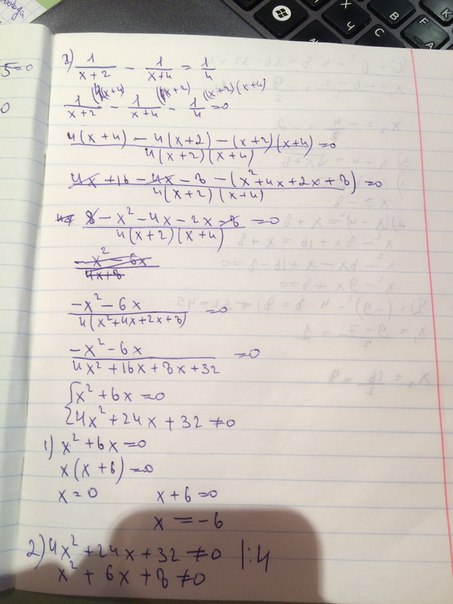 з) 1/(x+2) - 1/(x+4) = 1/4
1/(x+2) (4(x+4) - 1/(x+4) (4(x+2) - 1/4 (x+2)(x+4) = 0
(4(x+4) - 4(x+2) - (x+2)(x+4))/(4(x+2)(x+4)) = 0
(4x+16 - 4x - 8 - (x²+4x+2x+8))/(4(x+2)(x+4)) = 0
(8 - x² - 4x - 2x - 8)/(4(x+2)(x+4)) = 0
(-x² - 6x)/(4x+8)
(-x² - 6x)/(4(x²+4x+2x+8)) = 0
(-x² - 6x)/(4x²+16x+8x+32) = 0
{x²+6x=0
{4x²+24x+32≠0
1) x²+6x=0
x(x+6)=0
x=0 x+6=0
x=-6
2) 4x²+24x+32≠0 |:4
x²+6x+8≠0